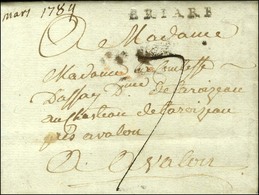 mars 1784
BRIARE
A Madame
Madame
Dassay Dme de taroiseau
au chasteau de taroiseau
près avalon
A avalon
7